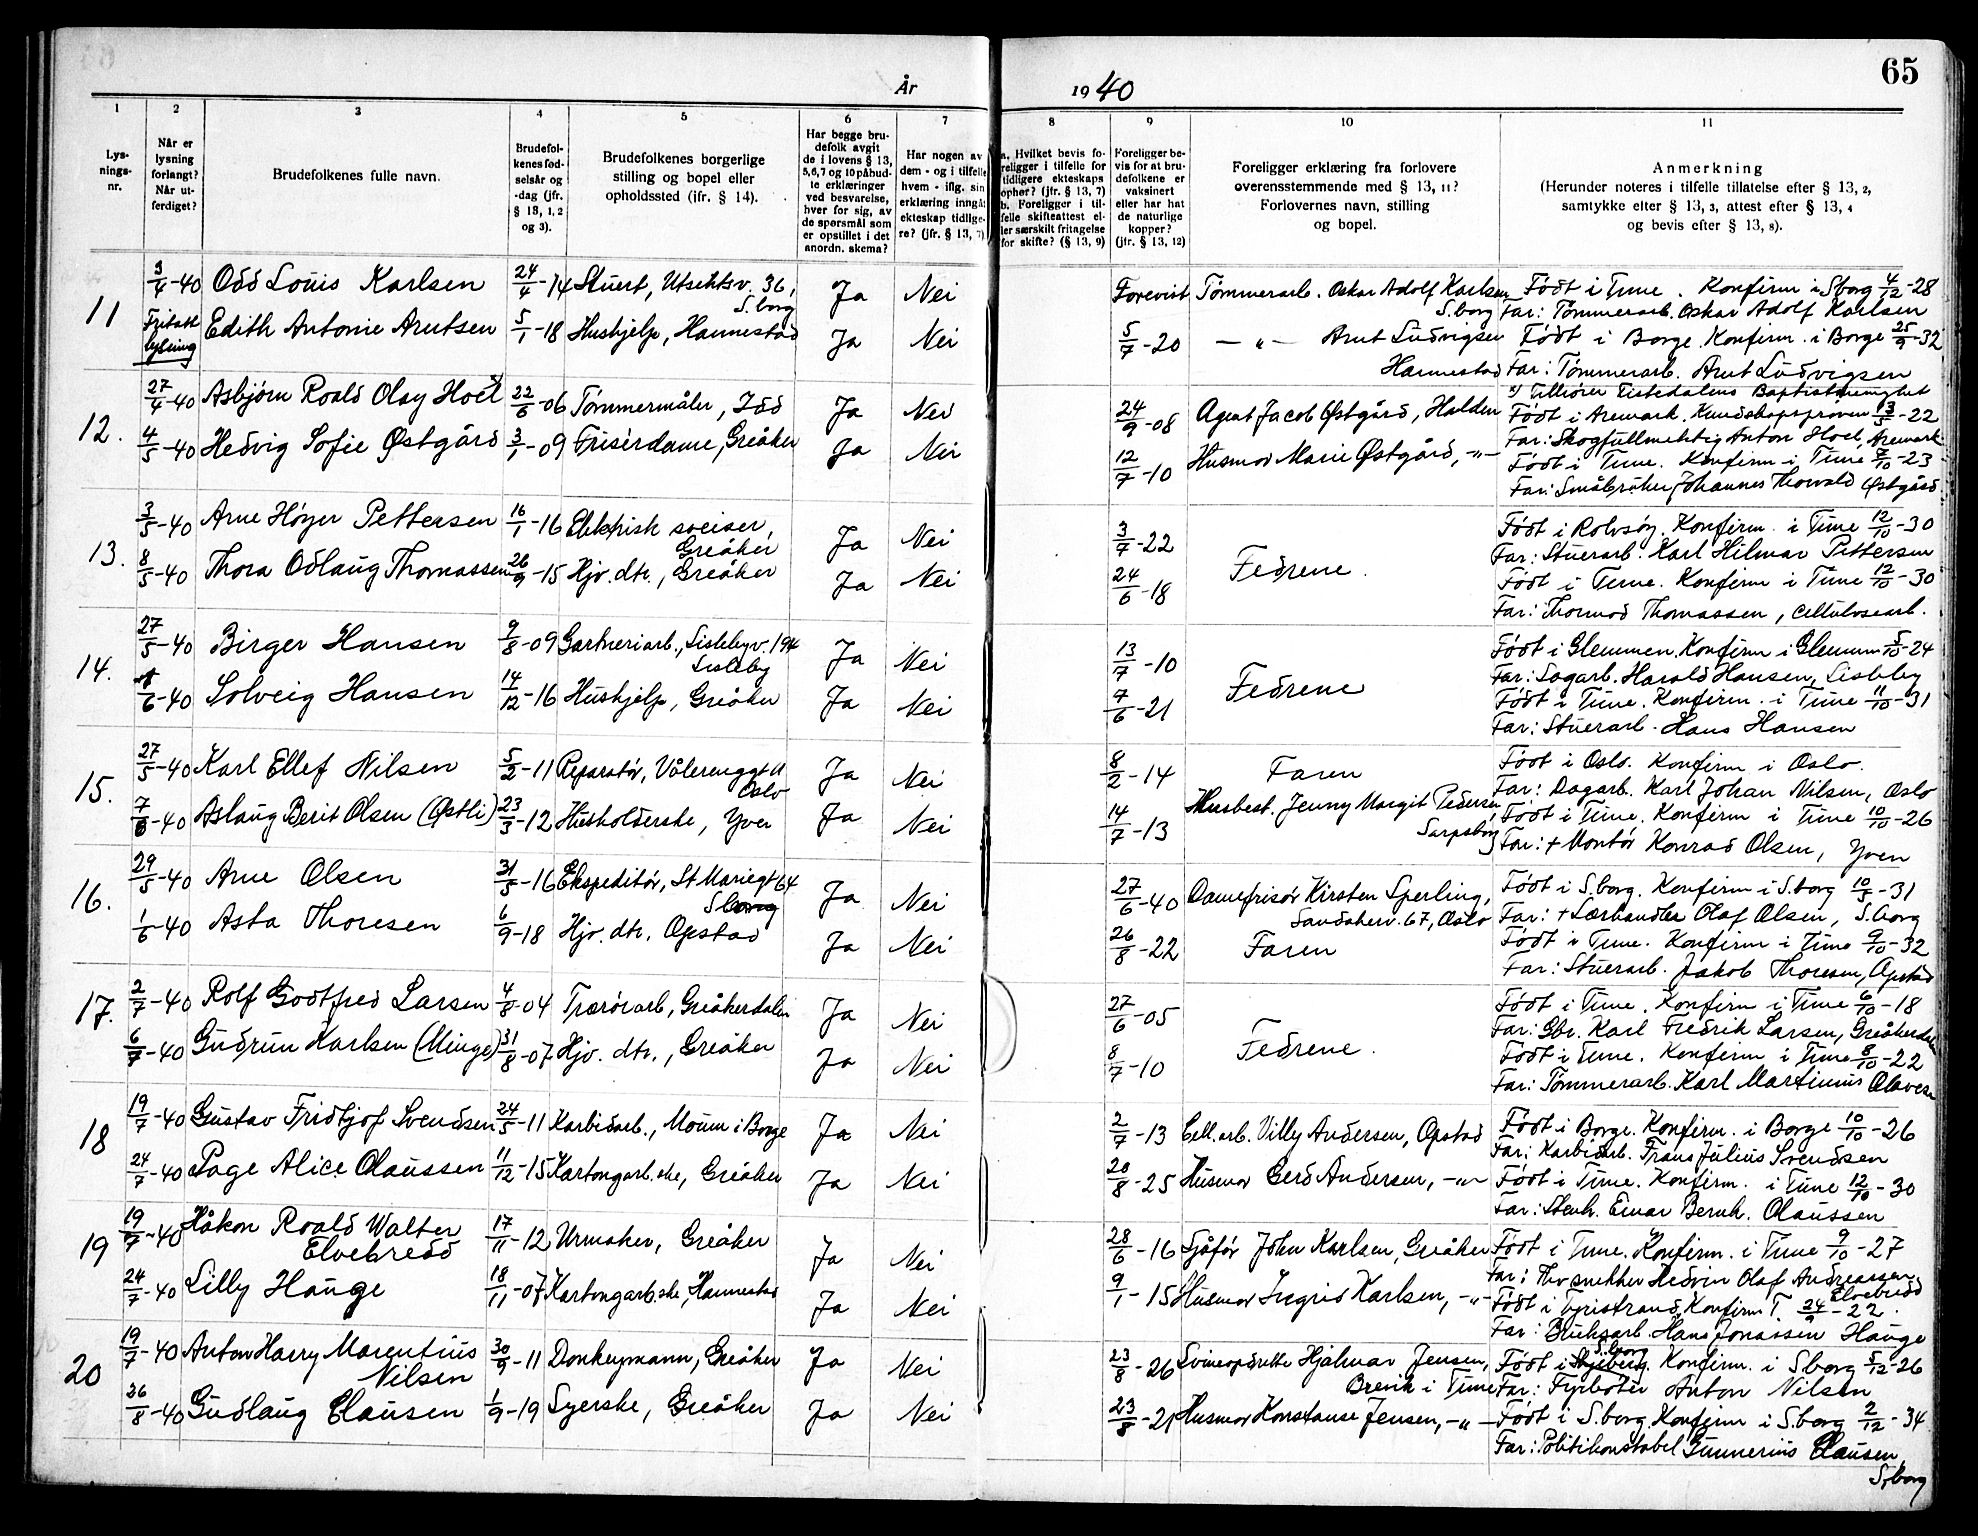 65
År 1940
1 2 3 4 5 6 7 8 9 10 11
Lys-
nings-
nr.
Når er
lysning
forlangt?
Når ut-
ferdiget?
Brudefolkenes fulle navn.
Brudefol-
kenes fød-
selsår og
-dag (jfr.
§ 13, 1, 2
og 3).
Brudefolkenes borgerlige
stilling og bopel eller
opholdssted (ifr. § 14).
Har begge bru-
defolk avgit
de i lovens § 13,
5, 6, 7 og 10 påbud-
te erklæringer
ved besvarelse,
hver for sig, av
de spørsmål som
er opstillet i det
anordn. skema?
Har nogen av
dem - og i tilfelle
hvem - iflg. sin
erklæring inngåt
ekteskap tidlige-
re? (jfr. § 13, 7)
a. Hvilket bevis fo-
religger i tilfelle for
tidligere ekteskaps
ophør? (jfr. § 13, 7)
b. Foreligger i til-
felle skifteattest el-
ler særskilt fritagelse
for skifte? (§ 13, 9)
Foreligger be-
vis for at bru-
defolkene er
vaksinert
eller har hat
de naturlige
kopper?
(jfr. § 13, 12)
Foreligger erklæring fra forlovere
overensstemmende med § 13, 11?
Forlovernes navn, stilling
og bopel.
Anmerkning
(Herunder noteres i tilfelle tillatelse efter § 13, 2,
samtykke efter § 13, 3, attest efter § 13, 4
og bevis efter § 13, 8).
11
3/4-40 Odd Louis Karlsen 24/4-14 Stuert, Utsiktsv. 36, S.borg Ja Nei Forevist Tømmerarb. Oskar Adolf Karlsen S.borg Født i Tune. Konfirm i S.borg 4/12-28
Far: Tømmerarb. Oskar Adolf Karlsen
Fritatt lysning Edith Antonie Arntsen 5/1-18 Hushjelp, Hannestad Ja Nei 5/7-20 — " — Arnt Ludvigsen Hannestad Født i Borge. Konfirm. i Borge 25/9-32
Far: Tømmerarb. Arnt Ludvigsen
12.
27/4-40 Asbjørn Roald Olay Hoel x) 22/6-06 Tømmermåler, Idd Ja Nei 24/9-08 Agent Jacob Østgård, Halden x) Tilhører Tistedalens Baptistmenighet
Født i Aremark. Kundskapsprøven 13/5-22
Far: Skogfullmektig Anton Hoel, Aremark
4/5-40 Hedvig Sofie Østgård 3/1-09 Frisérdame, Greåker Ja Nei 12/7-10 Husmor Marie Østgård, -"- Født i Tune. Konfirm i Tune 7/10-23
Far: Småbruker Johannes Thorvald Østgård
13.
3/5-40 Arne Høyer Pettersen 16/1-16 Elektrisk sveiser, Greåker Ja Nei 3/7-22 Fedrene. Født i Rolvsøy. Konfirm. i Tune 12/10-30
Far: Stuerarb. Karl Hilmar Pettersen
8/5-40 Thora Odlaug Thomassen 26/9-15 Hjv. dtr., Greåker Ja Nei 24/6-18 Født i Tune. Konfirm i Tune 12/10-30
Far: Thormod Thomassen, cellulosearb.
14.
27/5-40 Birger Hansen 9/8-09 Gartneriarb., Lislebyv. 194 Lisleby Ja Nei 13/7-10 Fedrene Født i Glemmen. Konfirm i Glemmen 5/10-24
Far: Sagarb. Harald Hansen, Lisleby
/6-40 Solveig Hansen 14/12-16 Hushjelp, Greåker Ja Nei 7/6-21 Født i Tune. Konfirm. i Tune 11/10-31
Far: Stuerarb. Hans Hansen
15.
27/5-40 Karl Ellef Nilsen 5/2-11 Reparatør, Vålerenggt Oslo Ja Nei 8/2-14 Faren Født i Oslo. Konfirm i Oslo.
Far: Dagarb. Karl Johan Nilsen, Oslo
7/6-40 Aslaug Berit Olsen (Østli) 23/3-12 Husholderske, Yven Ja Nei 14/7-13 Husbest. Jenny Margit Pedersen Sarpsborg Født i Tune. Konfirm i Tune 10/10-26
Far: + Montør Konrad Olsen, Yven
16.
29/5-40 Arne Olsen 31/5-16 Ekspeditør, St Mariegt 64 S.borg Ja Nei 27/6-40 Damefrisør Kirsten Sperling, Sandakerv. 67, Oslo Født i S.borg. Konfirm i S.borg 10/5-31
Far: + Lærhandler Olaf Olsen, S.borg
1/6-40 Asta Thoresen 6/9-18 Hjv. dtr. Opstad Ja Nei 26/8-22 Faren Født i Tune. Konfirm i Tune 9/10-32
Far: Stuerarb. Jakob Thoresen, Opstad
17.
2/7-40 Rolf Godtfred Larsen 4/8-04 Trærørarb, Greåkerdalen Ja Nei 27/6-05 Fedrene. Født i Tune. Konfirm i Tune 6/10-18
Far: Gbr. Karl Fredrik Larsen, Greåkerdalen
6/7-40 Gudrun Karlsen (Minge) 31/8-07 Hjv. dtr., Greåker Ja Nei 8/7-10 Født i Tune. Konfirm i Tune 8/10-22
Far: Tømmerarb. Karl Martinius Olavesen
18
19/7-40 Gustav Fridtjof Svendsen 24/5-11 Karbidarb., Moum i Borge Ja Nei 2/7-13 Cell.arb. Villy Andersen, Opstad Født i Borge. Konfirm. i Borge 10/10-26
Far: Karbidarb. Frans Julius Svendsen
24/7-40 Page Alice Olaussen 11/12-15 Kartongarb.ske, Greåker Ja Nei 20/8-25 Husmor Gerd Andersen, -"- Født i Tune. Konfirm. i Tune 12/10-30
Far: Stenh. Einar Bernh. Olaussen
19
19/7-40 Håkon Roald Walter Elvebredd 17/11-12 Urmaker, Greåker Ja Nei 28/6-16 Sjåfør John Karlsen, Greåker Født i Tune. Konfirm. i Tune 9/10-27
Far: Thv snekker Hedvin Olaf Andreassen Elvebredd
24/7-40 Lilly Hauge 18/11-07 Kartongarb.ske, Hannestad Ja Nei 9/1-15 Husmor Ingrid Karlsen, -"- Født i Tyristrand, Konfirm T. 24/9-22.
Far: Bruksarb. Hans Jonassen Hauge
20
19/7-40 Anton Harry Marentius Nilsen 30/9-11 Donkeymann, Greåker Ja Nei 23/8-26 Svineopdrette Hjalmar Jensen, Brevik i Tune Født i Skjeberg S.borg. Konfirm. i S.borg 5/12-26
Far: Fyrbøter Anton Nilsen
26/8-40 Gudlaug Clausen 1/9-19 Syerske, Greåker Ja Nei 23/8-21 Husmor Konstanse Jensen, -"- Født i S.borg. Konfirm i S.borg 2/12-34
Far: Politikonstabel Gunnerius Clausen, S.borg